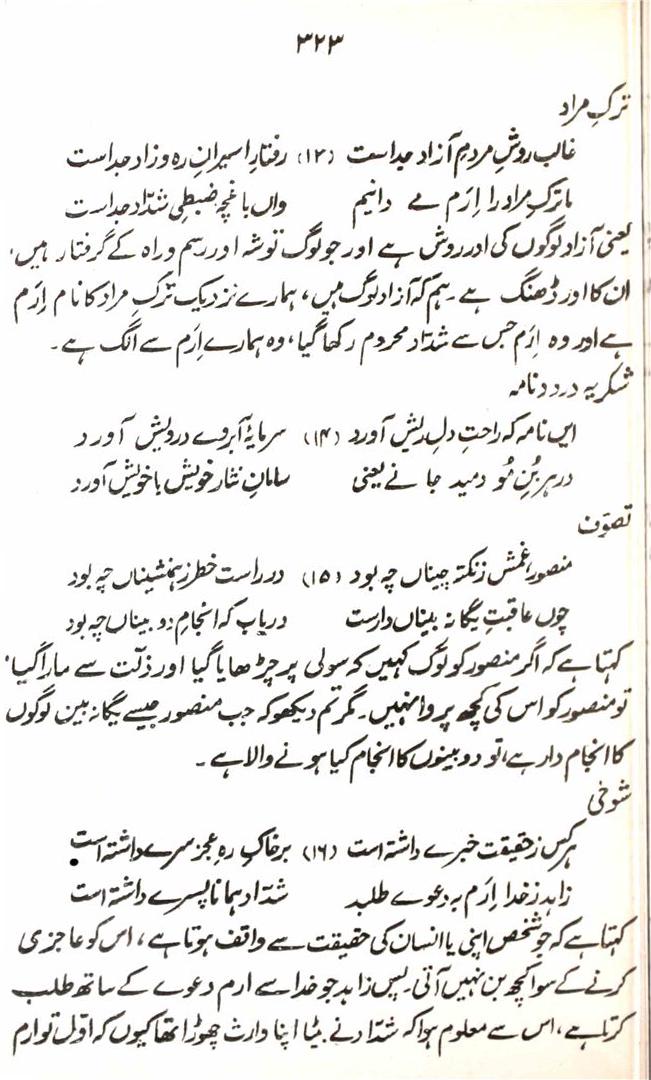 ۳۲۳
ترکِ مراد
غالب روشِ مردمِ آزاد جداست (۱۳) رفتارِ اسیرانِ رہ و زاد جداست
ما ترکِ مراد را اِرَم مے دانیم واں باغچہ ضبطیِ شدّاد جداست
یعنی آزاد لوگوں کی اور روش ہے اور جو لوگ توشہ اور رسم و راہ کے گرفتار ہیں،
ان کا اور ڈھنگ ہے۔ ہم کہ آزاد لوگ ہیں، ہمارے نزدیک ترکِ مراد کا نام اِرَم
ہے اور وہ اِرَم جس سے شدّاد محروم رکھا گیا، وہ ہمارے اِرَم سے الگ ہے۔
شکریہ درود نامہ
ایں نامہ کہ راحتِ دلِ ریش آورد (۱۴) سرمایۂ آبروے درویش آورد
در ہر بُنِ مُو دمید جانے یعنی سامانِ نثارِ خویش با خویش آورد
تصوّف
منصور غمش زنکتہ چیناں چہ بود (۱۵) در راست خطر ز ہمنشیناں چہ بود
چوں عاقبتِ یگانہ بیناں دارست دریاب کہ انجامِ دو بیناں چہ بود
کہتا ہے کہ اگر منصور کو لوگ کہیں کہ سولی پر چڑھایا گیا اور ذلّت سے مارا گیا،
تو منصور کو اس کی کچھ پروا نہیں۔ مگر تم دیکھو کہ جب منصور جیسے یگانہ بین لوگوں
کا انجام دار ہے، تو دو بینوں کا انجام کیا ہونے والا ہے۔
شوخی
ہر کس ز حقیقت خبرے داشتہ است (۱۶) بر خاکِ رہِ عجز سرے داشتہ است
زاہد ز خدا اِرَم بہ دعوے طلبد شدّاد ہمانا پسرے داشتہ است
کہتا ہے کہ جو شخص اپنی یا انسان کی حقیقت سے واقف ہوتا ہے، اس کو عاجزی
کرنے کے سوا کچھ بن نہیں آتی۔ پس زاہد جو خدا سے ارم دعوے کے ساتھ طلب
کرتا ہے، اس سے معلوم ہوا کہ شدّاد نے بیٹا اپنا وارث چھوڑا تھا کیوں کہ اوّل تو ارم